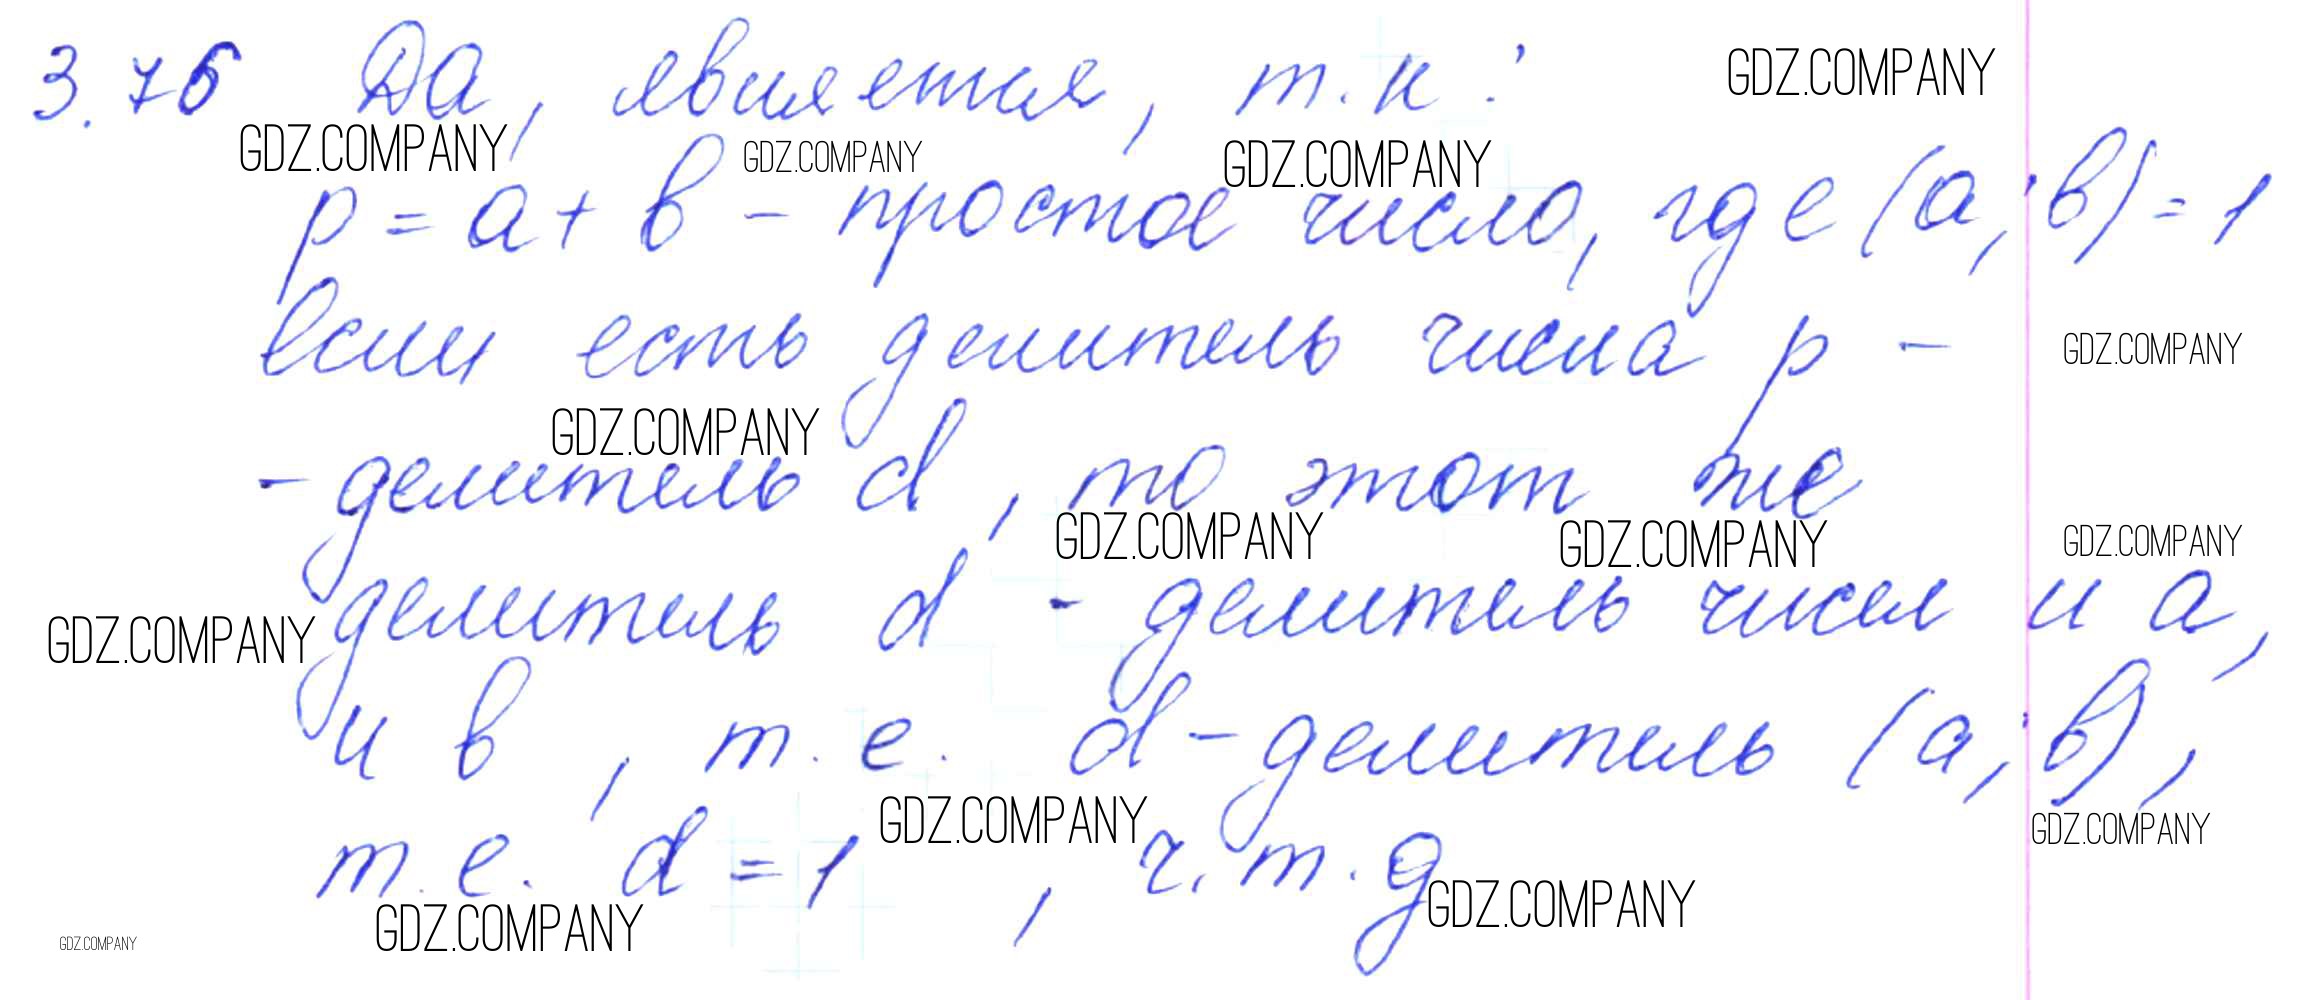 3.76 Да, является, т.к: GDZ.COMPANY
GDZ.COMPANY GDZ.COMPANY GDZ.COMPANY
p = a + b - простое число, где (a; b) = 1
если есть делитель числа p - GDZ.COMPANY
GDZ.COMPANY
- делитель d, то этот же
GDZ.COMPANY GDZ.COMPANY GDZ.COMPANY
GDZ.COMPANY делитель d - делитель чисел и a,
и b, т.е. d - делитель (a; b),
GDZ.COMPANY GDZ.COMPANY
т.е. d = 1, ч.т.д
GDZ.COMPANY GDZ.COMPANY GDZ.COMPANY